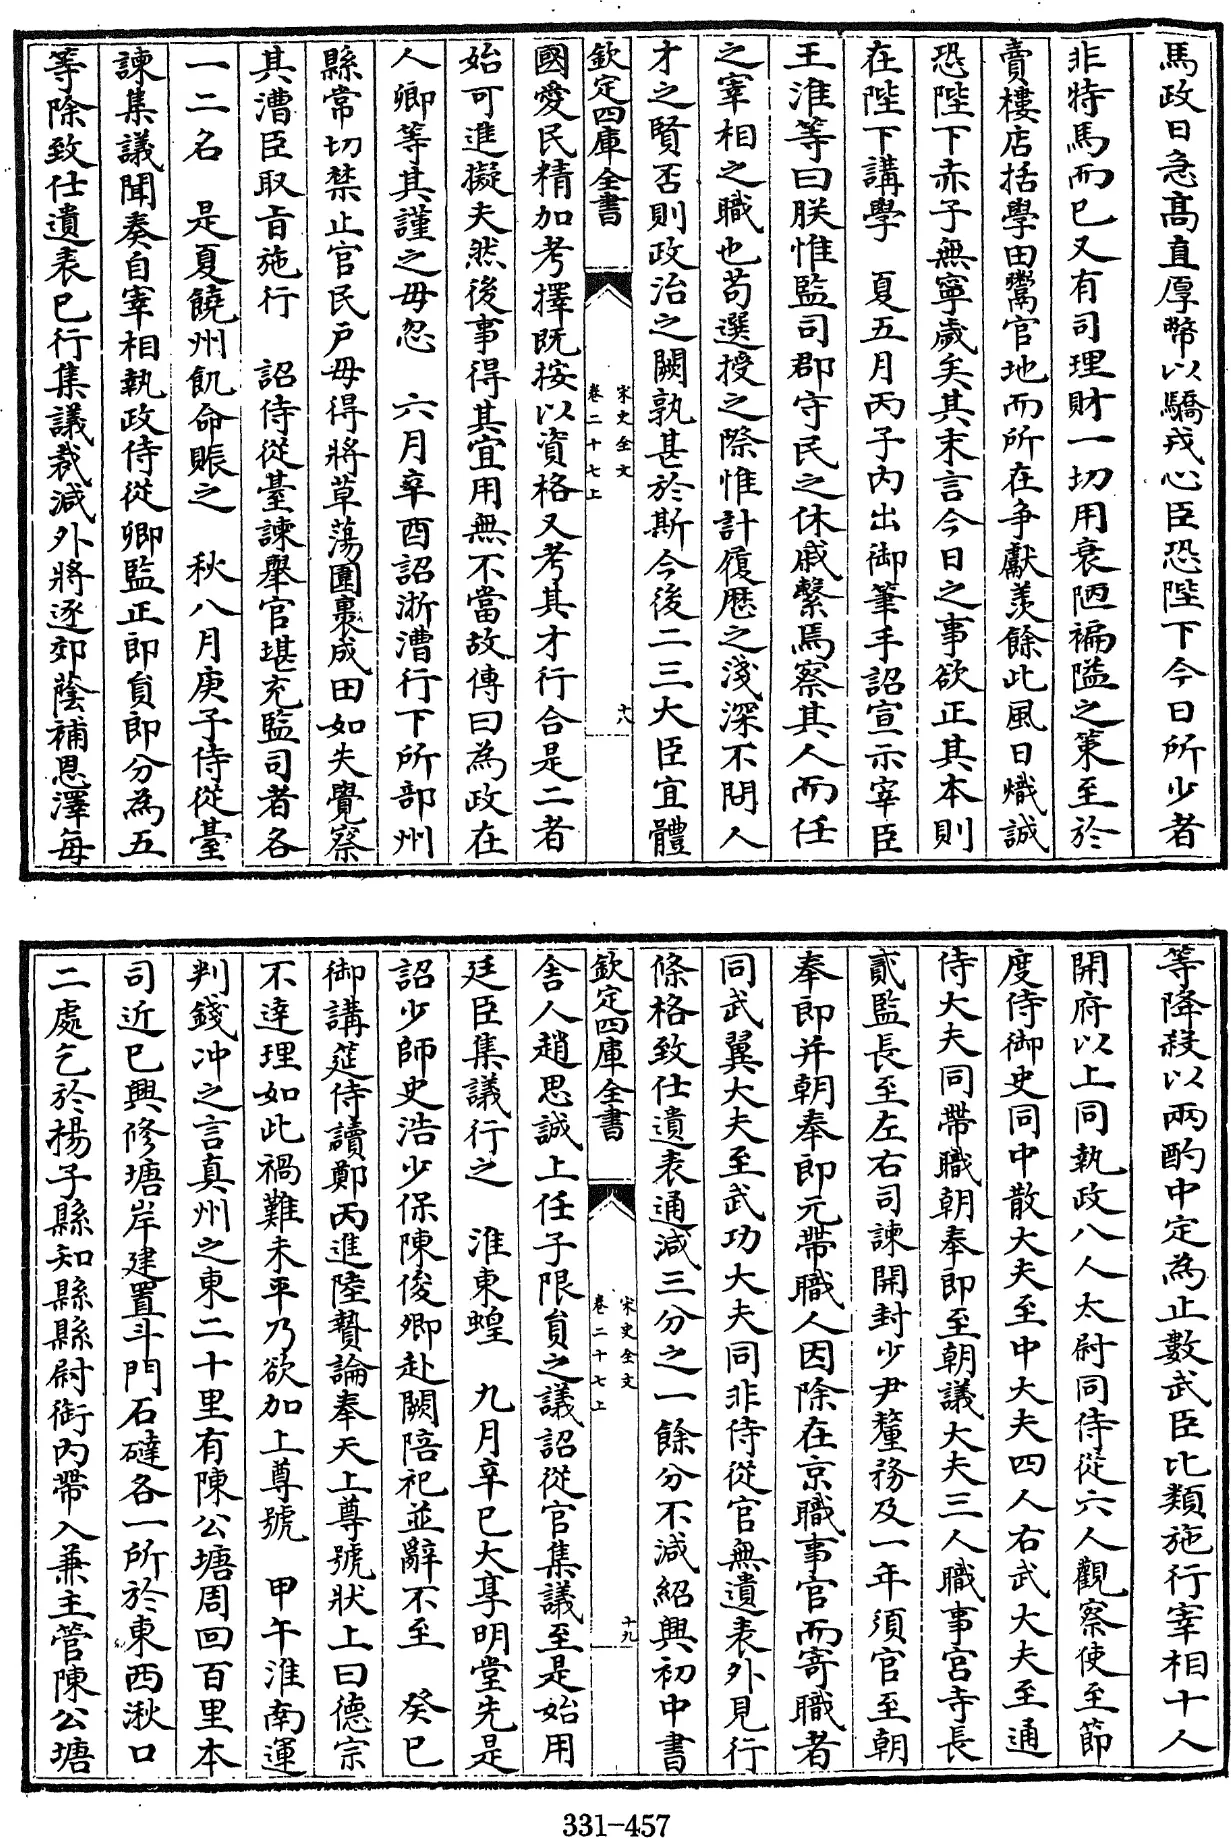 馬政日急高直厚幣以驕戎心臣恐陛下今日所少者
非特馬而已又有司理財一切用衰陋褊隘之策至於
賣樓店括學田鬻官地而所在争獻羨餘此風日熾誠
恐陛下赤子無寧歲矣其末言今日之事欲正其本則
在陛下講學　夏五月丙子内出御筆手詔宣示宰臣
王淮等曰朕惟監司郡守民之休戚繫焉察其人而任
之宰相之職也苟選授之際惟計履歴之淺深不問人
才之賢否則政治之闕孰甚於斯今後二三大臣宜體
欽定四庫全書
宋史全文
卷二十七上
十八
國愛民精加考擇既按以資格又考其才行合是二者
始可進擬夫然後事得其宜用無不當故傳曰為政在
人卿等其謹之毋忽　六月辛酉詔浙漕行下所部州
縣常切禁止官民户毋得將草蕩圍裹成田如失覺察
其漕臣取旨施行　詔侍從臺諫舉官堪充監司者各
一二名　是夏饒州飢命賑之　秋八月庚子侍從臺
諫集議聞奏自宰相執政侍從卿監正郎員郎分為五
等除致仕遺表已行集議裁減外將逐郊蔭補恩澤每
等降殺以兩酌中定為止數武臣比類施行宰相十人
開府以上同執政八人太尉同侍從六人觀察使至節
度侍御史同中散大夫至中大夫四人右武大夫至通
侍大夫同帶職朝奉郎至朝議大夫三人職事宫寺長
貳監長至左右司諫開封少尹釐務及一年須官至朝
奉郎并朝奉郎元帶職人因除在京職事官而寄職者
同武翼大夫至武功大夫同非侍從官無遺表外見行
條格致仕遺表通減三分之一餘分不減紹興初中書
欽定四庫全書
宋史全文
卷二十七上
十九
舍人趙思誠上任子限員之議詔從官集議至是始用
廷臣集議行之　淮東蝗　九月辛巳大享明堂先是
詔少師史浩少保陳俊卿赴闕陪祀並辭不至　癸巳
御講筵侍讀鄭丙進陸贄論奉天上尊號狀上曰德宗
不達理如此禍難未平乃欲加上尊號　甲午淮南運
判錢冲之言真州之東二十里有陳公塘周回百里本
司近已興修塘岸建置斗門石䃮各一所於東西湫口
二處乞於楊子縣知縣縣尉銜内帶入兼主管陳公塘
331-457